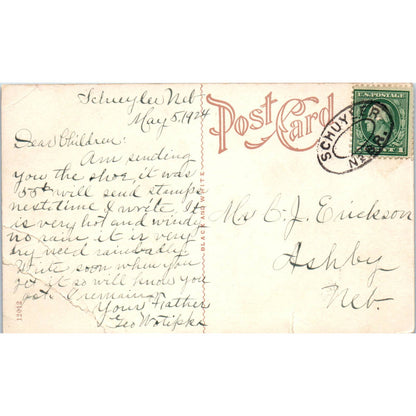 Schuyler Neb
May 5, 1924
Dear Children:
Am sending
you the shoe, it was
55¢ will send stamps
next time I write. It
is very hot and windy
no rain. it is very
dry need rain badly.
Write soon when you
get it so will know you
got it I remain
Your Father
Geo Wotipka
12042
BLACK AND WHITE
Post Card
U.S. POSTAGE
SCHUYLER
NEBR.
Ms C. J. Erickson
Ashby
Neb.